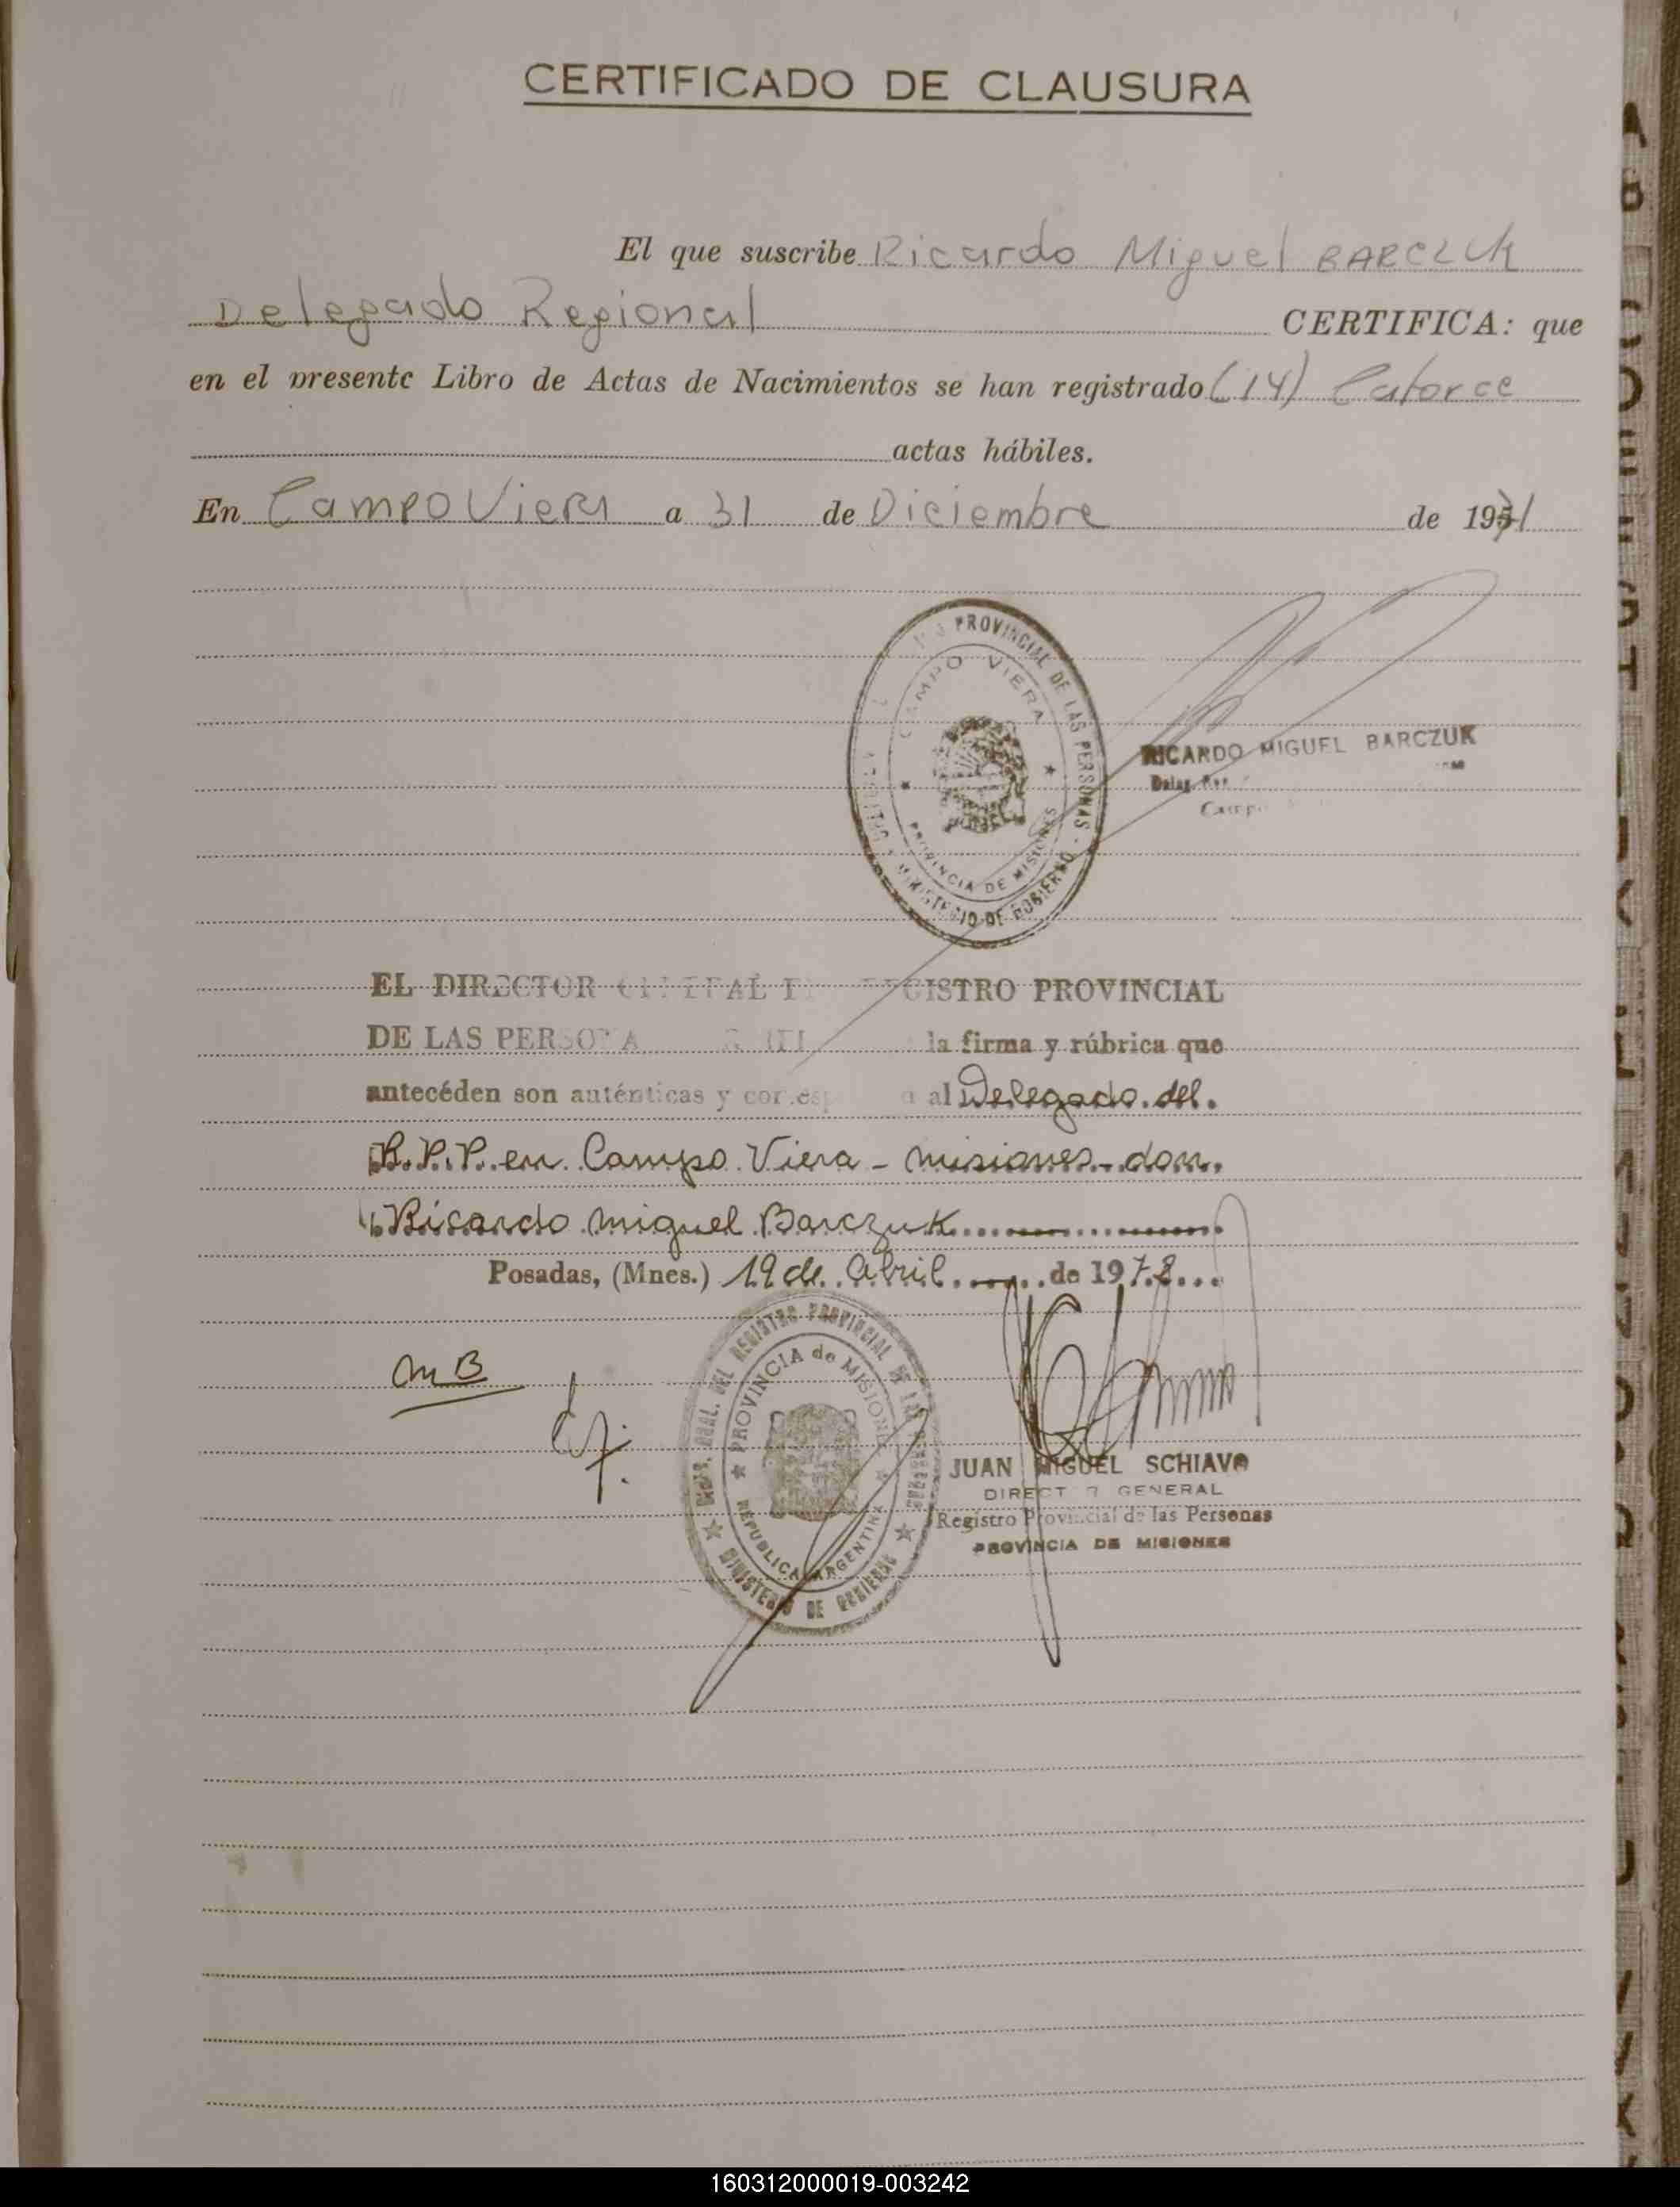 CERTIFICADO DE CLAUSURA
El que suscribe Ricardo Miguel BARCZUK
Delegado Regional CERTIFICA: que
en el presente Libro de Actas de Nacimientos se han registrado (14) Catorce
actas hábiles.
En Campo Viera a 31 de Diciembre de 1971
PROVINCIAL DE LAS PERSONAS - MINISTERIO DE GOBIERNO
CAMPO VIERA
PROVINCIA DE MISIONES
RICARDO MIGUEL BARCZUK
Deleg.
EL DIRECTOR REGISTRO PROVINCIAL
DE LAS la firma y rúbrica que
antecéden son auténticas y al Delegado del
R.P.P. en Campo Viera - Misiones - don
Ricardo Miguel Barczuk
Posadas, (Mnes.) 19 de Abril de 1978
MB
DEL REGISTRO PROVINCIAL DE LAS PERSONAS
PROVINCIA de MISIONES
REPUBLICA ARGENTINA
MINISTERIO DE GOBIERNO
JUAN MIGUEL SCHIAVO
DIRECTOR GENERAL
Registro Provincial de las Personas
PROVINCIA DE MISIONES
160312000019-003242